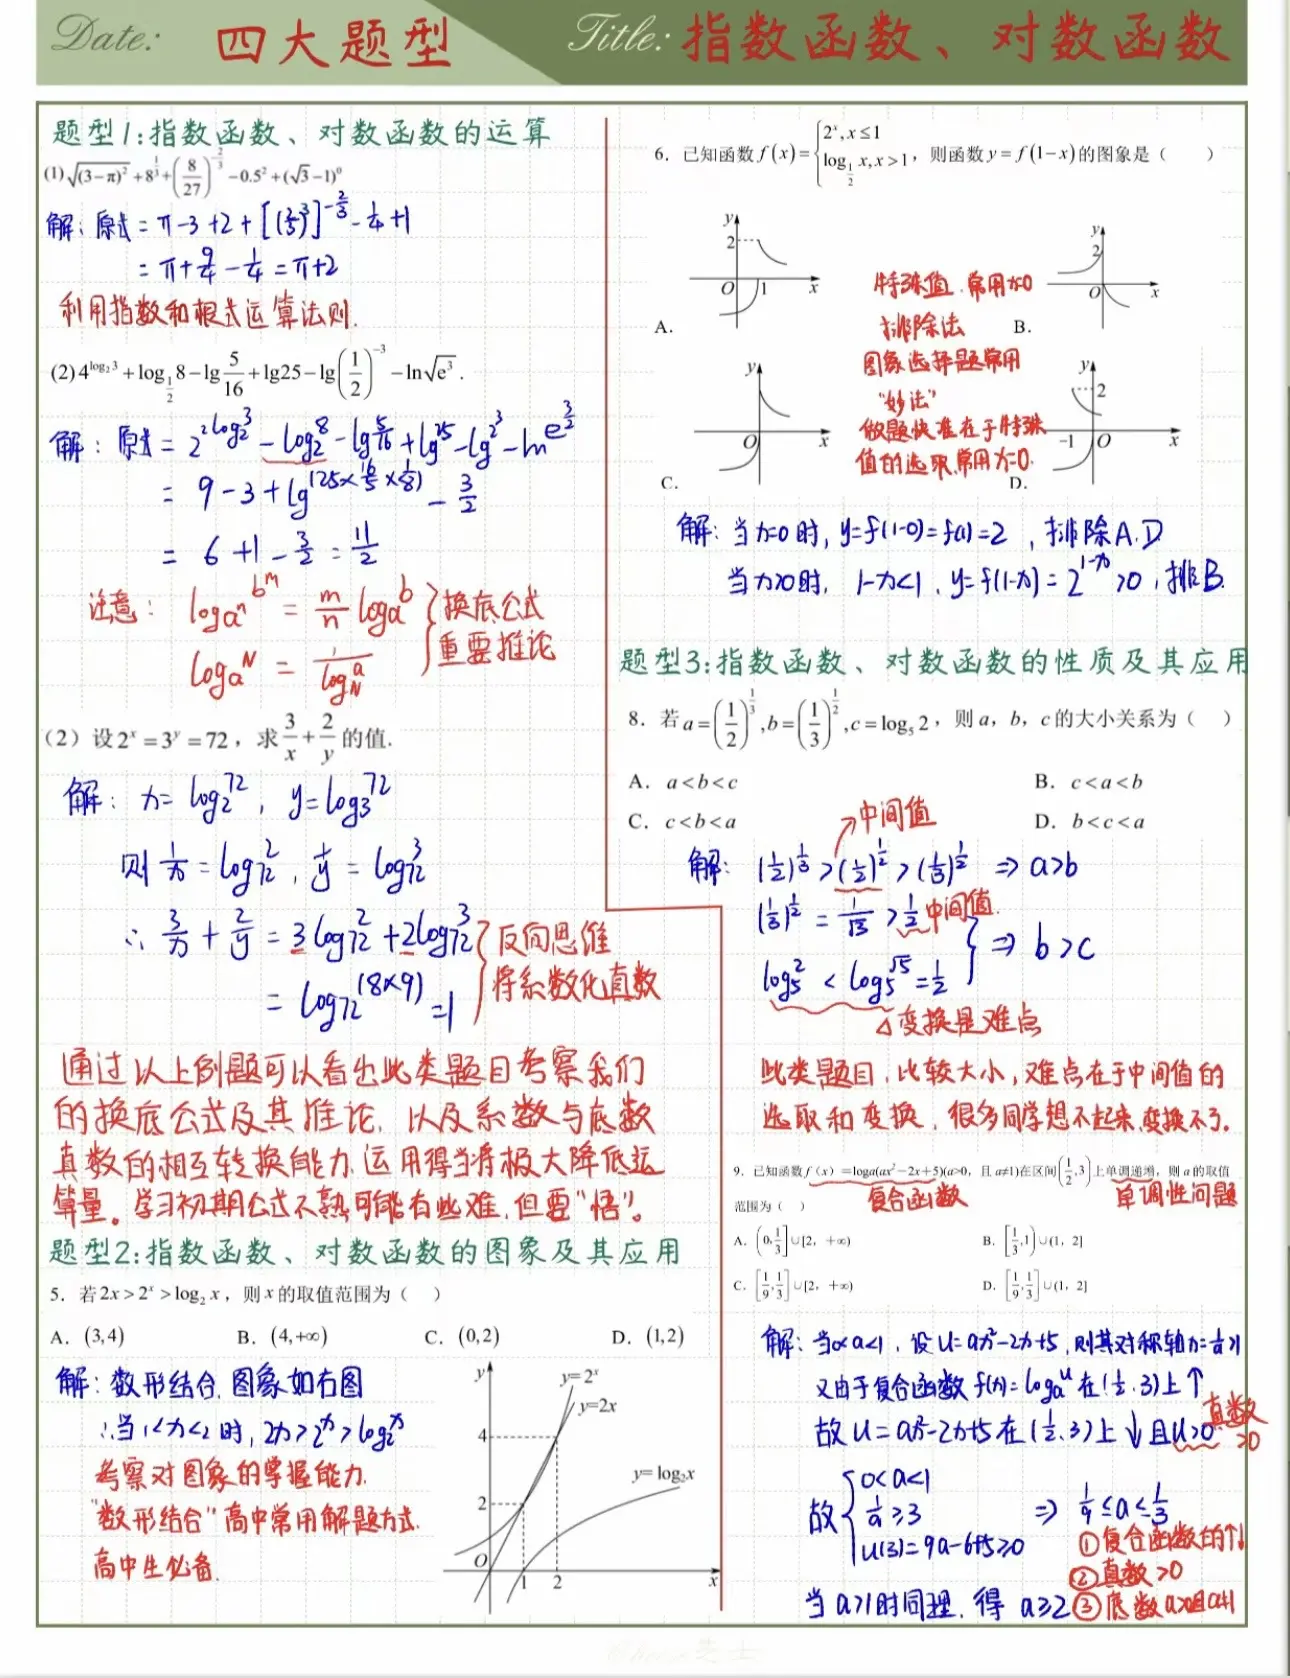 Date: 四大题型
Title: 指数函数、对数函数
题型1:指数函数、对数函数的运算
(1)√(3−π)² +8^(1/3)+(8/27)^(−2/3) −0.5²+(√3−1)⁰
解:原式=π−3+2+[(2/3)³]^(−2/3)−1/4+1
=π+9/4−1/4=π+2
利用指数和根式运算法则.
(2)4^(log₂3)+log_(1/2)8−lg5/16+lg25−lg(1/2)^(−3)−ln√e³.
解:原式=2^(2log₂3)−log₂8−lg5/16+lg25−lg2³−lne^(3/2)
=9−3+lg(25×16/5×1/8)−3/2
=6+1−3/2=11/2
注意: log_(aⁿ)b^m=m/n log_a b }换底公式
log_a N=1/log_N a 重要推论
(2)设2^x=3^y=72,求3/x+2/y的值.
解: x=log₂72, y=log₃72
则1/x=log₇₂2, 1/y=log₇₂3
∴3/x+2/y=3log₇₂2+2log₇₂3 }反向思维
=log₇₂(8×9)=1 将系数化真数
通过以上例题可以看出此类题目考察我们
的换底公式及其推论,以及系数与底数
真数的相互转换能力,运用得当将极大降低运
算量。学习初期公式不熟可能有些难,但要"悟"。
题型2:指数函数、对数函数的图象及其应用
5. 若2x>2^x>log₂x,则x的取值范围为( )
A. (3,4) B. (4,+∞) C. (0,2) D. (1,2)
解:数形结合,图象如右图
∴当1<x<2时,2x>2^x>log₂x
考察对图象的掌握能力.
"数形结合"高中常用解题方式.
高中生必备.
y y=2^x
y=2x
4
y=log₂x
2
O 1 2 x
6. 已知函数f(x)={2^x,x≤1 log_(1/2)x,x>1,则函数y=f(1−x)的图象是( )
y 2 O 1 x
A.
y 2 O x
B.
特殊值,常用x=0
排除法
图象选择题常用
"妙法"
做题快准在于特殊
值的选取,常用x=0.
y O x
C.
y 2 −1 O x
D.
解:当x=0时,y=f(1−0)=f(1)=2,排除A.D
当x>0时, 1−x<1,y=f(1−x)=2^(1−x)>0,排B.
题型3:指数函数、对数函数的性质及其应用
8. 若a=(1/2)^(1/3),b=(1/3)^(1/2),c=log₅2,则a,b,c的大小关系为( )
A. a<b<c B. c<a<b
C. c<b<a D. b<c<a
中间值
解: (1/2)^(1/3)>(1/2)^(1/2)>(1/3)^(1/2) ⇒a>b
(1/3)^(1/2)=1/√3>1/2 中间值.
log₅2<log₅√5=1/2 }⇒b>c
△变换是难点
此类题目,比较大小,难点在于中间值的
选取和变换,很多同学想不起来,变换不了.
9. 已知函数f(x)=loga(ax²−2x+5)(a>0,且a≠1)在区间(1/2,3)上单调递增,则a的取值
范围为( ) 复合函数 单调性问题
A. (0,1/3]∪[2,+∞) B. [1/3,1)∪(1,2]
C. [1/9,1/3]∪[2,+∞) D. [1/9,1/3]∪(1,2]
解:当0<a<1,设u=ax²−2x+5,则其对称轴x=1/a>1
又由于复合函数f(x)=log_a u在(1/2,3)上↑
故u=ax²−2x+5在(1/2,3)上↓且u>0 真数>0
故{0<a<1
1/a≥3 ⇒1/9≤a≤1/3
u(3)=9a−6+5≥0 ①复合函数的↑↓
②真数>0
当a>1时同理,得a≥2 ③底数a>0且a≠1